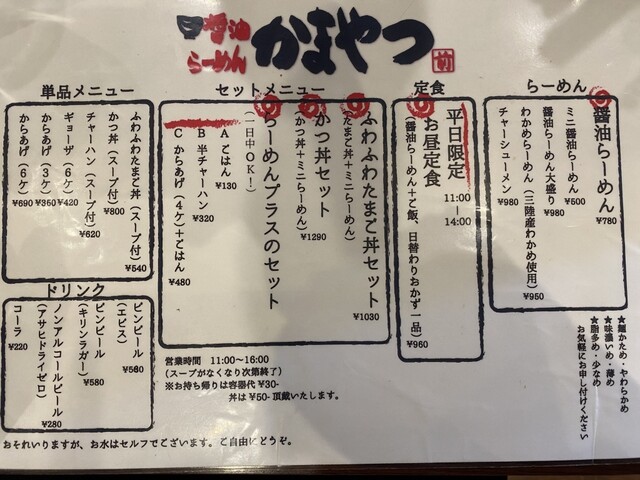 醤油
らーめん
かまやつ
らーめん
醤油らーめん
¥780
ミニ醤油らーめん
¥500
醤油らーめん大盛り
¥980
わかめらーめん(三陸産わかめ使用)
¥950
チャーシューメン
¥980
★麺かため・やわらかめ
★味濃いめ・薄め
★脂多め・少なめ
お気軽にお申し付けください
定食
平日限定
11:00
|
14:00
お昼定食
(醤油らーめん+ご飯、日替わりおかず一品)
¥960
セットメニュー
ふわふわたまご丼セット
(たまご丼+ミニらーめん)
¥1030
かつ丼セット
(かつ丼+ミニらーめん)
¥1290
らーめんプラスのセット
(一日中OK!)
A ごはん
¥130
B 半チャーハン
¥320
C からあげ(4ケ)+ごはん
¥480
単品メニュー
ふわふわたまご丼(スープ付)
¥540
かつ丼(スープ付)
¥800
チャーハン(スープ付)
¥620
ギョーザ(6ケ)
¥420
からあげ(3ケ)
¥360
からあげ(6ケ)
¥690
ドリンク
ビンビール
(エビス)
¥560
ビンビール
(キリンラガー)
¥580
ノンアルコールビール
(アサヒドライゼロ)
¥280
コーラ
¥220
営業時間 11:00～16:00
(スープがなくなり次第終了)
※お持ち帰りは容器代 ¥30-
丼は ¥50- 頂戴いたします。
おそれいりますが、お水はセルフでございます。ご自由にどうぞ。